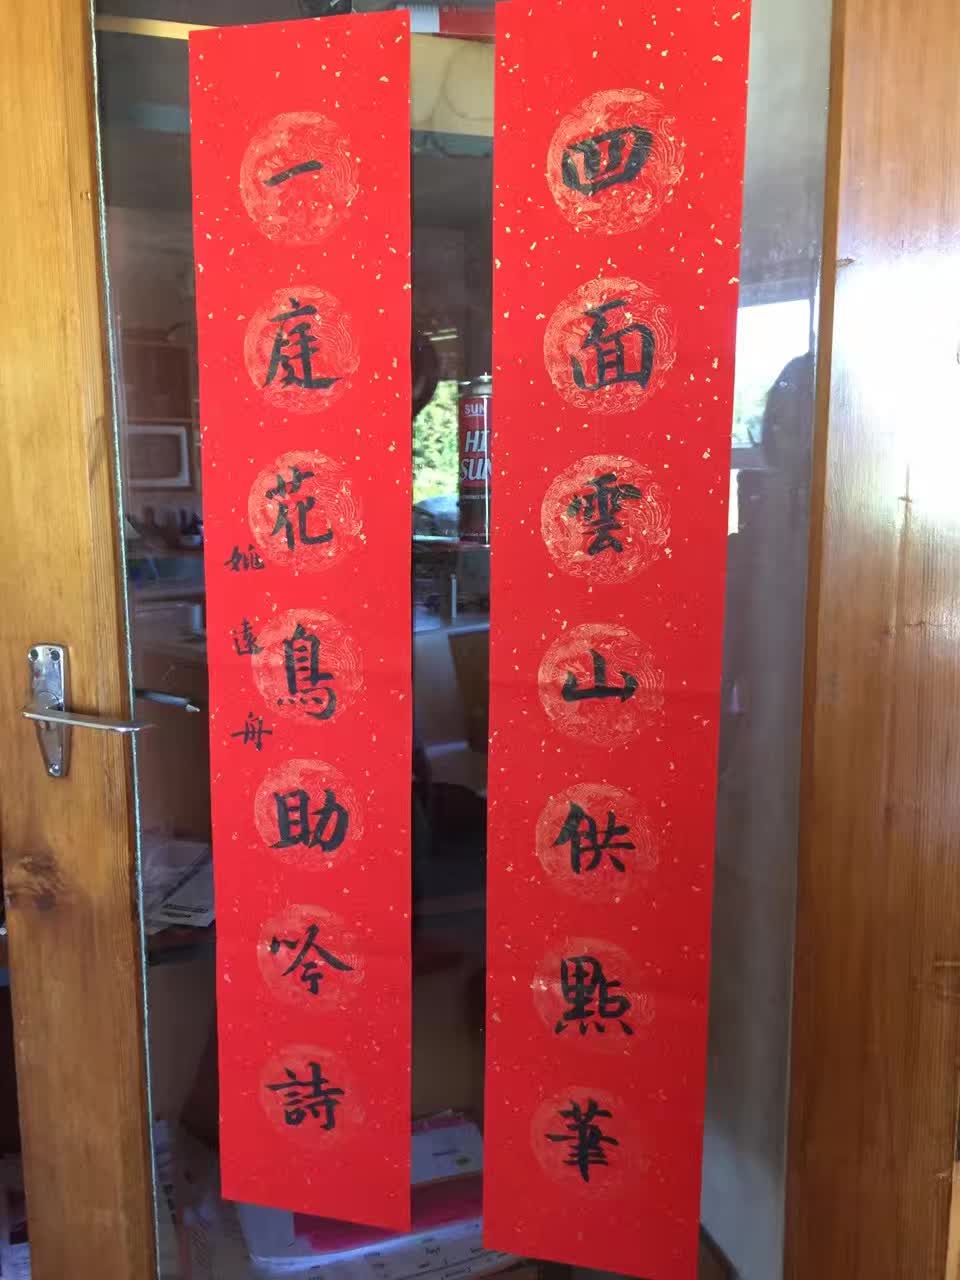 四面雲山供點筆
一庭花鳥助吟詩
姚遠舟
SUN
HI
SUN